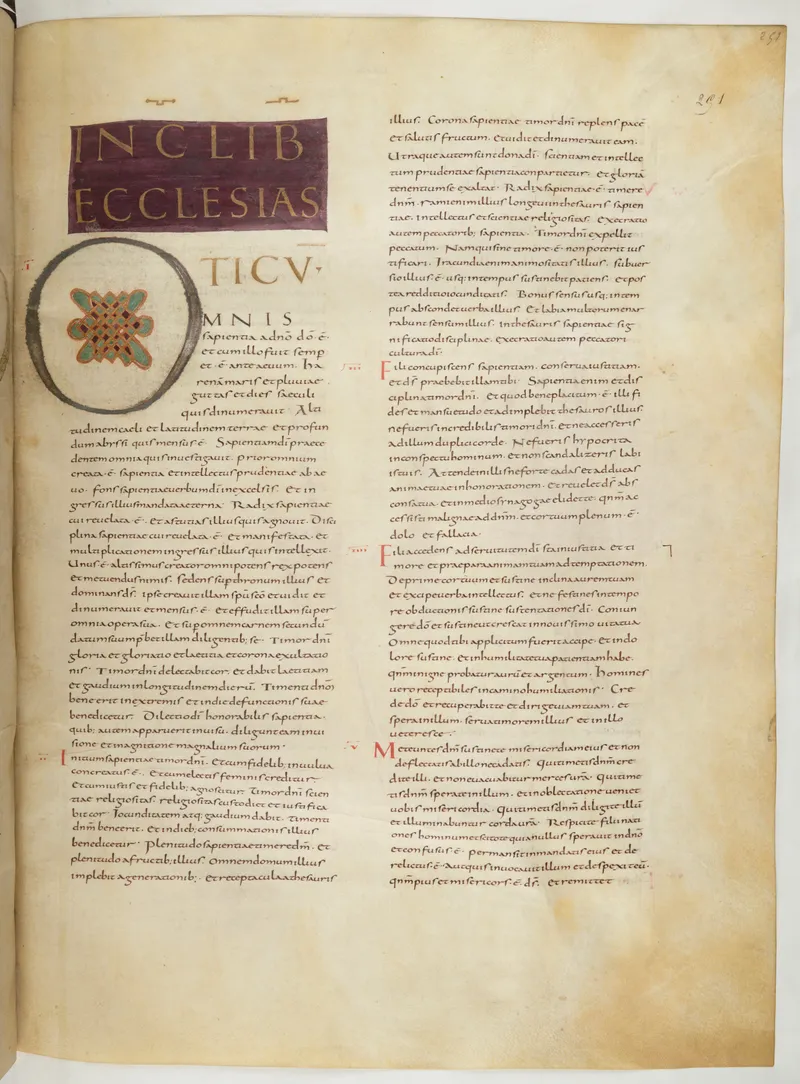 291
291
INC LIB
ECCLESIAS
TICVꝰ
OMNIS
sapientia adnō dō ē·
et cum illo fuit semp
et ē ante aeuum. ha
rena maris et pluuiae
guttas et dies saeculi
quis dinumerauit· Alti
tudinem caeli et latitudinem terrae· et profun
dum abyssi quis mensus ē· Sapientiam dī praece
dentem omnia quis inuestigauit. prior omnium
creata ē sapientia et intellectus prudentiae ab ae
uo· fons sapientiae uerbum dī in excelsis· Et in
gressus illius mandata aeterna· Radix sapientiae
cui reuelata ē· et astutias illius quis agnouit· Disci
plina sapientiae cui reuelata ē· et manifestata· et
multiplicationem ingressus illius quis intellexit·
Unus ē altissimus creator omnipotens rex potens
et metuendus nimis. sedens sup thronum illius et
dominans dś· ipse creauit illam spū scō et uidit et
dinumerauit et mensus ē· et effudit illam super
omnia opera sua· et sup omnem carnem secundū
datum suum p̄bet illam diligentib; se· Timor dnī
gloria et gloriatio et laetitia et corona exultatio
nis· Timor dnī delectabit cor· et dabit laetitiam
et gaudium in longitudinem dierū. Timenti dnō
bene erit in extremis et in die defunctionis suae
benedicetur· Dilectio dī honorabilis sapientia·
quib; autem apparuerit in uisu. diligunt eam in ui
sione et in agnitione magnalium suorum·
Initium sapientiae timor dnī. et cum fidelib; in uulua
concreatus ē· et cum electis feminis creditur
et cum iustis et fidelib; agnoscitur· Timor dnī scien
tiae religiositas. religiositas custodiet et iustifica
bit cor· Iocunditatem atq; gaudium dabit. timenti
dnm̄ bene erit. et in dieb; consummationis illius
benedicetur· Plenitudo sapientiae timere dm̄. et
plenitudo a fructib; illius· Omnem domum illius
implebit a generationib;. et receptacula a thesauris
illius· Corona sapientiae timor dnī replens pacē
et salutis fructum. et uidit et dinumerauit eam.
Utraque autem sunt dona dī· scientiam et intellec
tum prudentiae sapientia conpartietur· et gloriā
tenentium se exaltat· Radix sapientiae ē timere
dnm̄. rami enim illius longeui in thesauris sapien
tiae. intellectus et scientiae religiositas. execratio
autem peccatorib; sapientia· Timor dnī expellit
peccatum· Nam qui sine timore ē non poterit ius
tificari. Iracundia enim animositatis illius. subuer
sio illius ē· usq; in tempus sustinebit patiens. et pos
tea redditio iocunditatis· Bonus sensus usq; in tem
pus abscondet uerba illius· Et labia multorum enar
rabunt sensum illius. in thesauris sapientiae sig
nificatio disciplinae. execratio autem peccatori
cultura dī·
Fili concupiscens sapientiam. conserua iustitiam.
et dś praebebit illam tibi· Sapientia enim et dis
ciplina timor dnī. et quod beneplacitum ē illi fi
des et mansuetudo et adimplebit thesauros illius.
ne fueris incredibilis timori dnī. et ne accesseris
ad illum duplici corde. Ne fueris hypocrita
in conspectu hominum. et non scandalizeris labi
is tuis· Attende in illis ne forte cadas et adducas
animae tuae inhonorationem. et reuelet dś abs
consa tua. et in medio synagogae elidat te· qnm̄ ac
cessisti maligne ad dnm̄. et cor tuum plenum ē
dolo et fallacia·
Fili accedens ad seruitutem dī sta in iustitia et ti
more et praepara animam tuam ad temptationem.
Deprime cor tuum et sustine inclina aurem tuam
et excipe uerba intellectus. et ne festines in tempo
re obductionis sustine sustentationes dī· Coniun
gere dō et sustine ut crescat in nouissimo uita tua
Omne quod tibi applicitum fuerit accipe· et in do
lore sustine. et in humilitate tua patientiam habe.
qnm̄ in igne probatur aurū et argentum. homines
uero receptabiles in camino humiliationis· Cre
de dō et recuperabit te et dirige uiam tuam. et
spera in illum. serua timorem illius et in illo
ueteresce·
Metuentes dm̄ sustinete misericordiam eius et non
deflectatis ab illo ne cadatis· qui timetis dnm̄ cre
dite illi. et non euacuabitur merces ura· qui time
tis dnm̄ sperate in illum. et in oblectatione ueniet
uobis misericordia· qui timetis dnm̄ diligite illū
et illuminabuntur corda ura· Respicite filii nati
ones hominum et scitote quia nullus sperauit in dnō
et confusus ē· permansit in mandatis eius et de
relictus ē· Aut quis inuocauit illum et despexit eū·
qnm̄ pius et misericors ē dś. et remittet